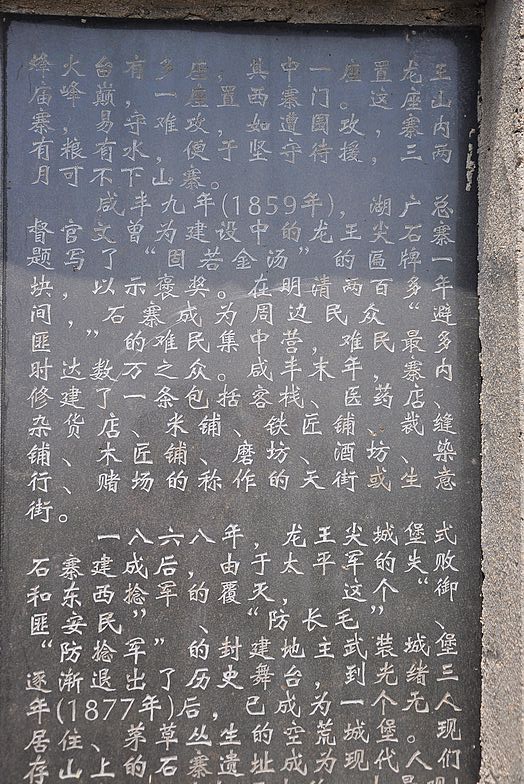 烽火台有多座，其中一座置龙王
庙峰巅，一座置西寨门。这座山
寨，易守难攻，如遭围攻，寨内
有粮有水，便于坚守待援，三两
月可不下山寨。
咸丰九年(1859年)，湖广总
督官文曾为建设中的龙王尖石寨
题写了“固若金汤”的匾牌一
块，以示褒奖。在明清两百多年
间，石寨成为周边民众“避
匪”的难民集中营，难民最多
时，达数万之众。咸丰末年，寨内
修建了一条包括客栈、医药店、
杂货店、米铺、铁匠铺、裁缝
铺、木匠铺、磨坊、酒坊、染
行、赌场的称作的天街或生意
街。
一八六八年，龙王尖城堡式
石寨建成后，由于太平军的失败
和东西捻军的覆灭，这个“防御
匪安民”、“防长毛、
防捻军”的封建地主武装城堡、
逐渐退出了历史舞台。到光绪三
年(1877年)后，已成为一个无人
居住、茅草丛生的荒城堡。现
存山上的石寨遗址空为现代人们